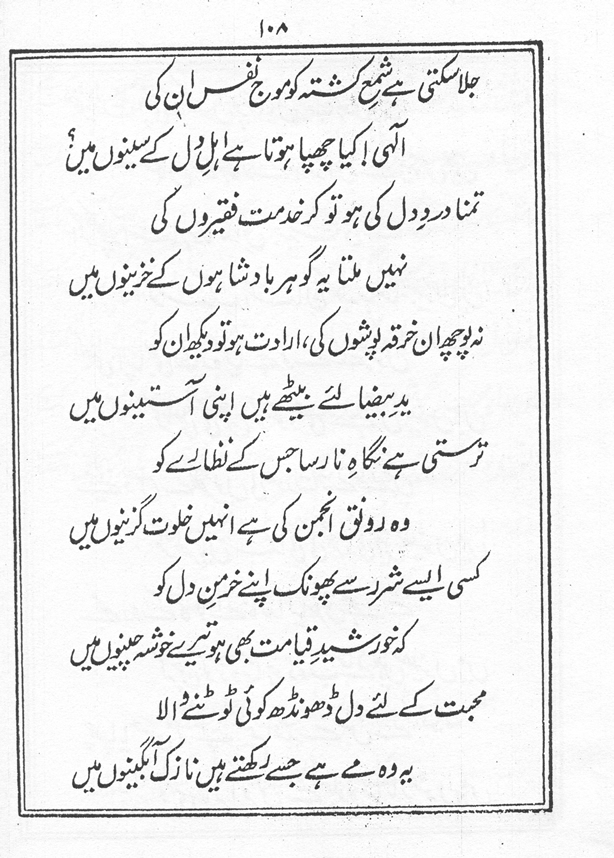 ۱۰۸
جلا سکتی ہے شمعِ کشتہ کو موجِ نفس ان کی
الٰہی! کیا چھپا ہوتا ہے اہلِ دل کے سینوں میں؟
تمنا دردِ دل کی ہو تو کر خدمت فقیروں کی
نہیں ملتا یہ گوہر بادشاہوں کے خزینوں میں
نہ پوچھ ان خرقہ پوشوں کی، ارادت ہو تو دیکھ ان کو
یدِ بیضا لئے بیٹھے ہیں اپنی آستینوں میں
ترستی ہے نگاہِ نارسا جس کے نظارے کو
وہ رونق انجمن کی ہے انہیں خلوت گزینوں میں
کسی ایسے شرر سے پھونک اپنے خرمنِ دل کو
کہ خورشیدِ قیامت بھی ہو تیرے خوشہ چینوں میں
محبت کے لئے دل ڈھونڈھ کوئی ٹوٹنے والا
یہ وہ مے ہے جسے رکھتے ہیں نازک آبگینوں میں